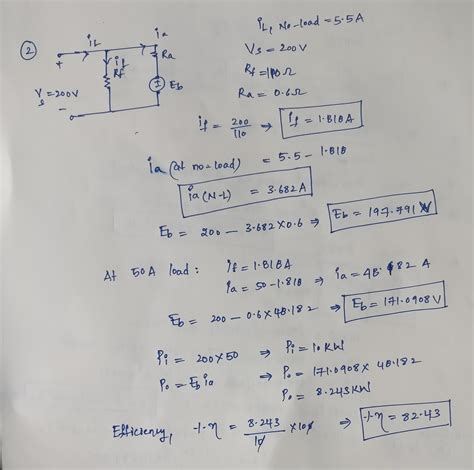 ②
iL
ia
+
if
Rf
Ra
Eb
Vs = 200V
-
iL, No-load = 5.5A
Vs = 200V
Rf = 110Ω
Ra = 0.6Ω
if = 200/110 ⇒ if = 1.818A
ia (at no-load) = 5.5 - 1.818
ia (N-L) = 3.682 A
Eb = 200 - 3.682×0.6 ⇒ Eb = 197.791 V
At 50A load: if = 1.818A
ia = 50 - 1.818 ⇒ ia = 48.182 A
Eb = 200 - 0.6×48.182 ⇒ Eb = 171.0908V
Pi = 200×50 ⇒ Pi = 10 KW
Po = Eb ia ⇒ Po = 171.0908× 48.182
Po = 8.243KW
Efficiency, %η = 8.243/10 ×100 ⇒ %η = 82.43